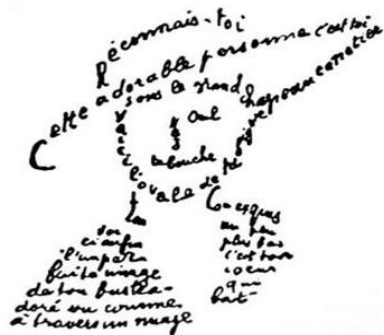 Reconnais-toi
Cette adorable personne c'est toi
Sous le grand chapeau canotier
Œil
Nez
La bouche
Voici l'ovale de ta figure
Ton
Cou exquis
Voi
ci enfin
l'impar
faite image
de ton buste a-
doré vu comme
à travers un nuage
un peu
plus bas
c'est ton
cœur
qui
bat